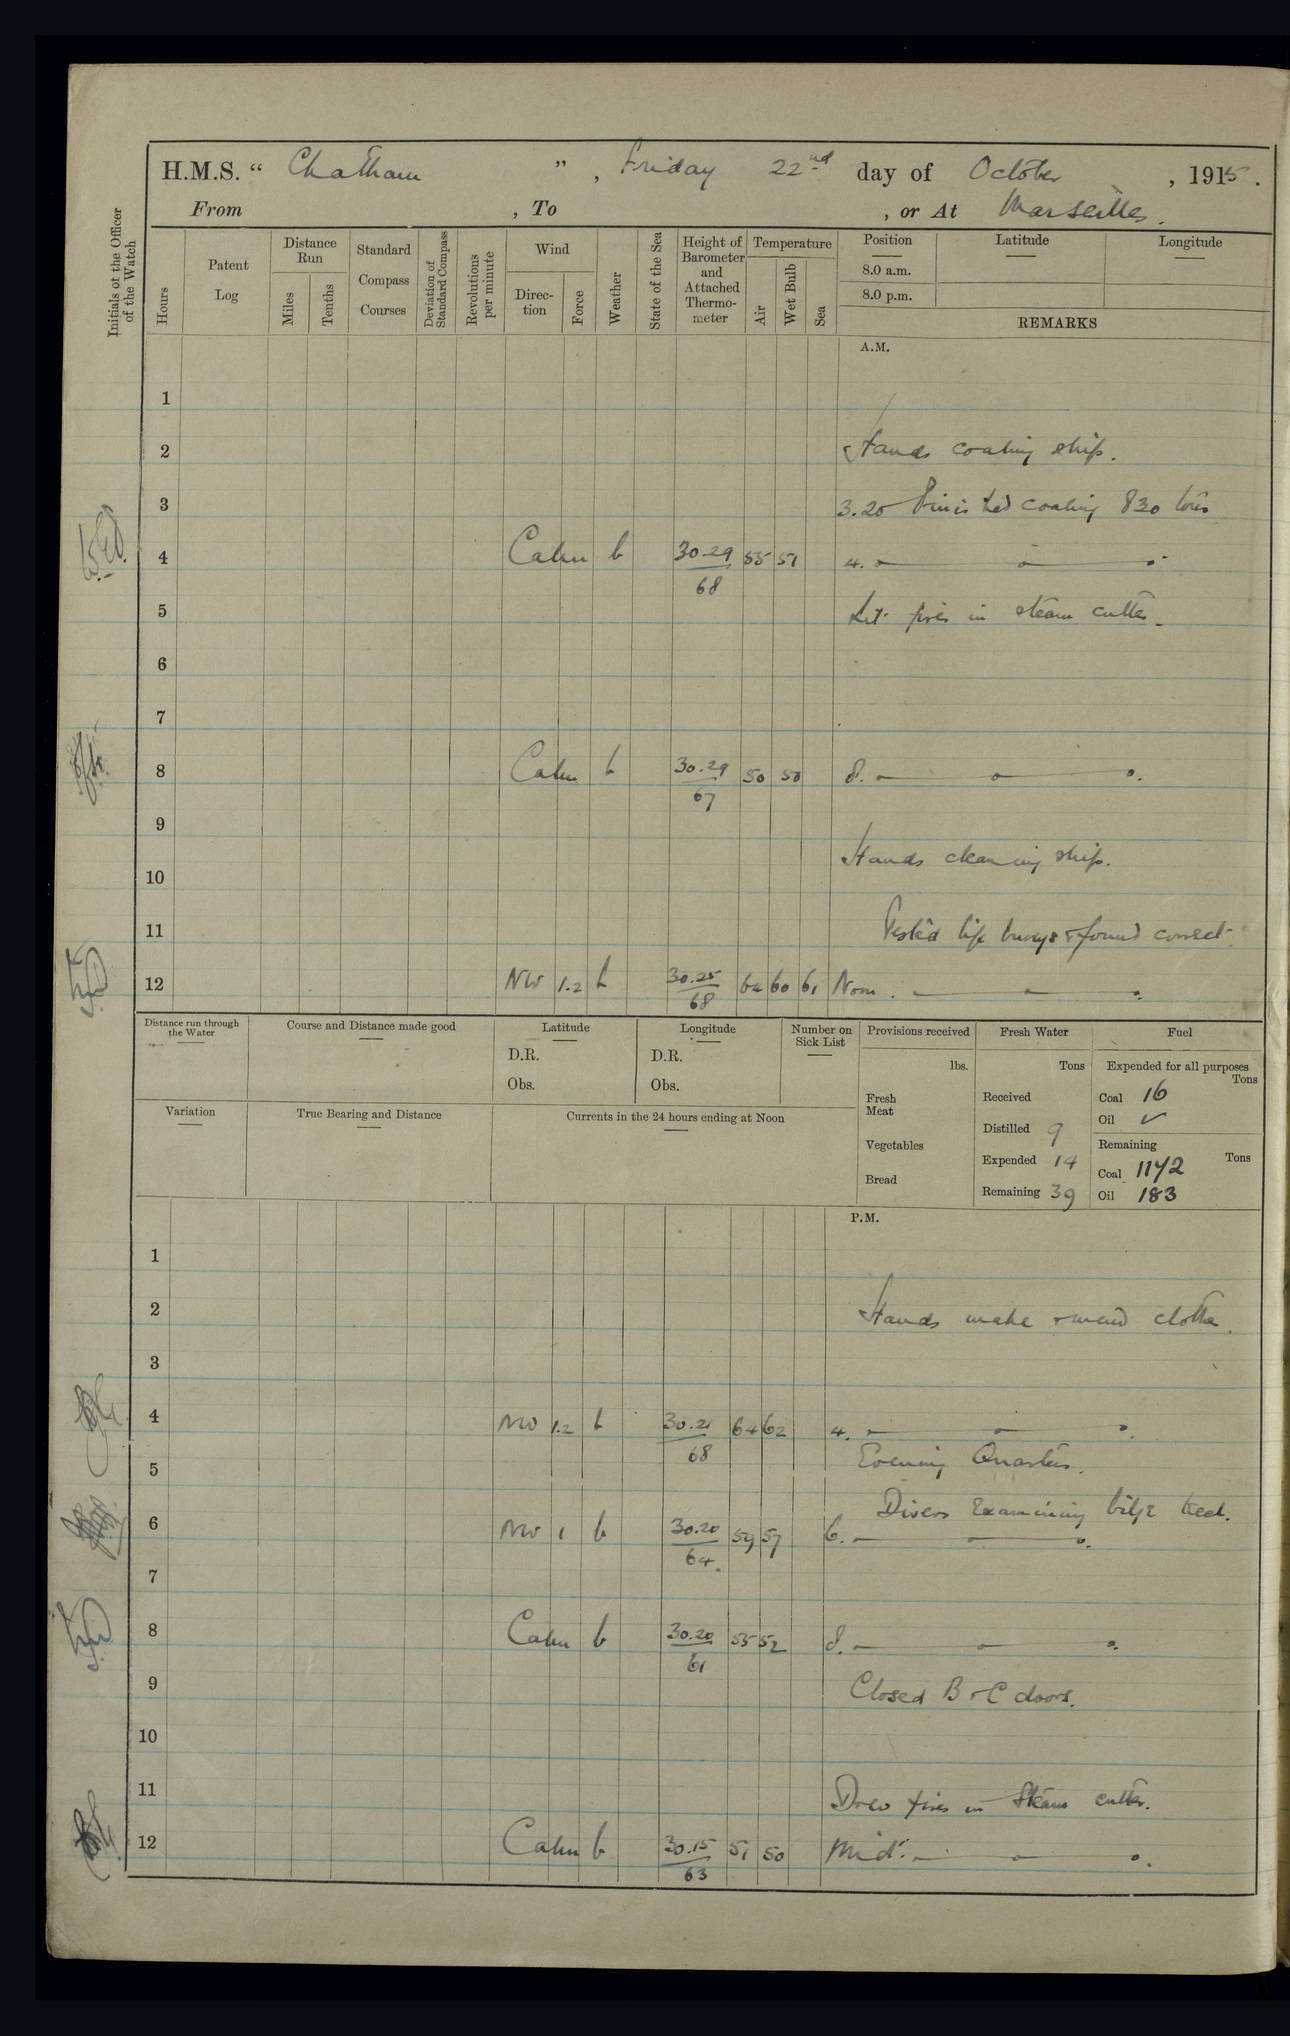 H.M.S. “ Chatham ” , Friday 22nd day of October , 1915 .
From , To , or At Marseilles .
Initials of the Officer of the Watch
Hours
Patent Log
Distance Run
Miles
Tenths
Standard Compass Courses
Deviation of Standard Compass
Revolutions per minute
Wind
Direction
Force
Weather
State of the Sea
Height of Barometer and Attached Thermometer
Temperature
Air
Wet Bulb
Sea
Position Latitude Longitude
8.0 a.m.
8.0 p.m.
REMARKS
A.M.
1
2 Hands coaling ship.
3 3.20 Finished coaling 830 tons
4 Calm b 30.29 55 51 4.
68
5 Lit fires in steam cutter.
6
7
8 Calm b 30.29 50 50 8.
67
9
10 Hands cleaning ship.
11 Tested life buoys & found correct.
12 NW 1.2 b 30.25 62 60 61 Noon.
68
Distance run through the Water
Course and Distance made good
Latitude
D.R.
Obs.
Longitude
D.R.
Obs.
Number on Sick List
Provisions received
lbs.
Fresh Meat
Vegetables
Bread
Fresh Water
Tons
Received
Distilled 9
Expended 14
Remaining 39
Fuel
Expended for all purposes
Tons
Coal 16
Oil ✓
Remaining
Tons
Coal 1142
Oil 183
Variation
True Bearing and Distance
Currents in the 24 hours ending at Noon
P.M.
1
2 Hands make & mend clothes.
3
4 NW 1.2 b 30.21 64 62 4.
68
5 Evening Quarters.
Divers Examining bilge keel.
6 NW 1 b 30.20 59 57 6.
64.
7
8 Calm b 30.20 55 52 8.
61
9 Closed B & C doors.
10
11 Drew fires in Steam cutter.
12 Calm b 30.15 51 50 Midt.
63